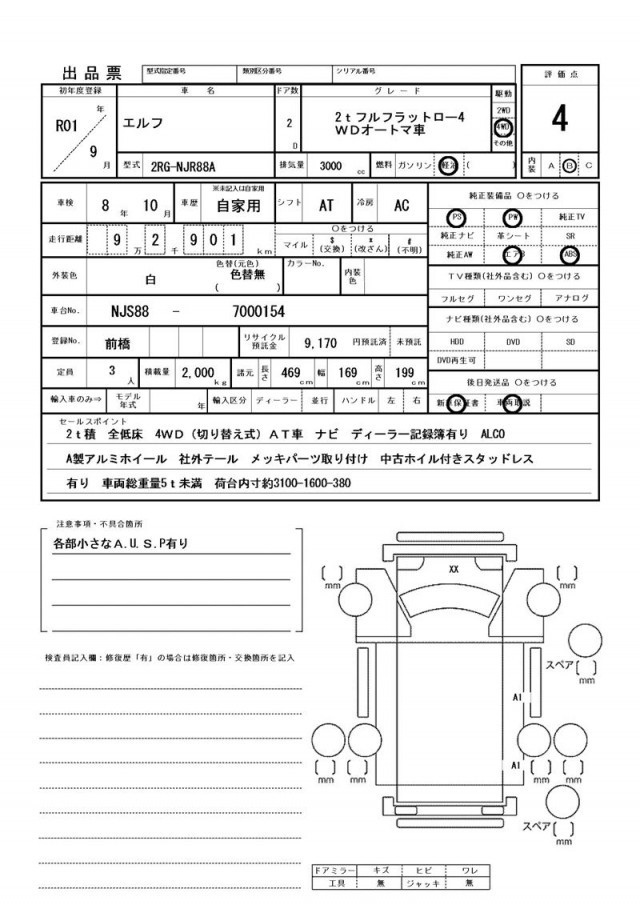 出品票 型式指定番号 類別区分番号 シリアル番号
評価点
初年度登録 車名 ドア数 グレード 駆動
R01 年 エルフ 2 D 2tフルフラットロー4 2WD
WDオートマ車 4WD
その他
4
9 月 型式 2RG-NJR88A 排気量 3000 cc 燃料 ガソリン 軽油 ( ) 内装 A B C
車検 8 年 10 月 車歴 ※未記入は自家用 自家用 シフト AT 冷房 AC
純正装備品 ○をつける
PS PW 純正TV
走行距離 9 万 2 千 901 km ○をつける マイル $ (交換) * (改ざん) # (不明)
純正ナビ 革シート SR
純正AW エアB ABS
外装色 白 色替(元色) 色替無 ( ) カラーNo. 内装色
TV種類(社外品含む) ○をつける
フルセグ ワンセグ アナログ
車台No. NJS88 - 7000154
ナビ種類(社外品含む) ○をつける
登録No. 前橋 リサイクル預託金 9,170 円預託済 未預託
HDD DVD SD
DVD再生可
定員 3 人 積載量 2,000 kg 諸元 長さ 469 cm 幅 169 cm 高さ 199 cm
後日発送品 ○をつける
輸入車のみ⇒ モデル年式 年 輸入区分 ディーラー 並行 ハンドル 左 右
新車保証書 車両取説
セールスポイント
2t積 全低床 4WD (切り替え式) AT車 ナビ ディーラー記録簿有り ALCO
A製アルミホイール 社外テール メッキパーツ取り付け 中古ホイル付きスタッドレス
有り 車両総重量5t未満 荷台内寸約3100-1600-380
注意事項・不具合箇所
各部小さなA.U.S.P有り
検査員記入欄：修復歴「有」の場合は修復箇所・交換箇所を記入
XX
[ ] mm
[ ] mm
スペア [ ] mm
A1
A1
[ ] mm
[ ] mm
[ ] mm
[ ] mm
スペア [ ] mm
ドアミラー キズ ヒビ ワレ
工具 無 ジャッキ 無